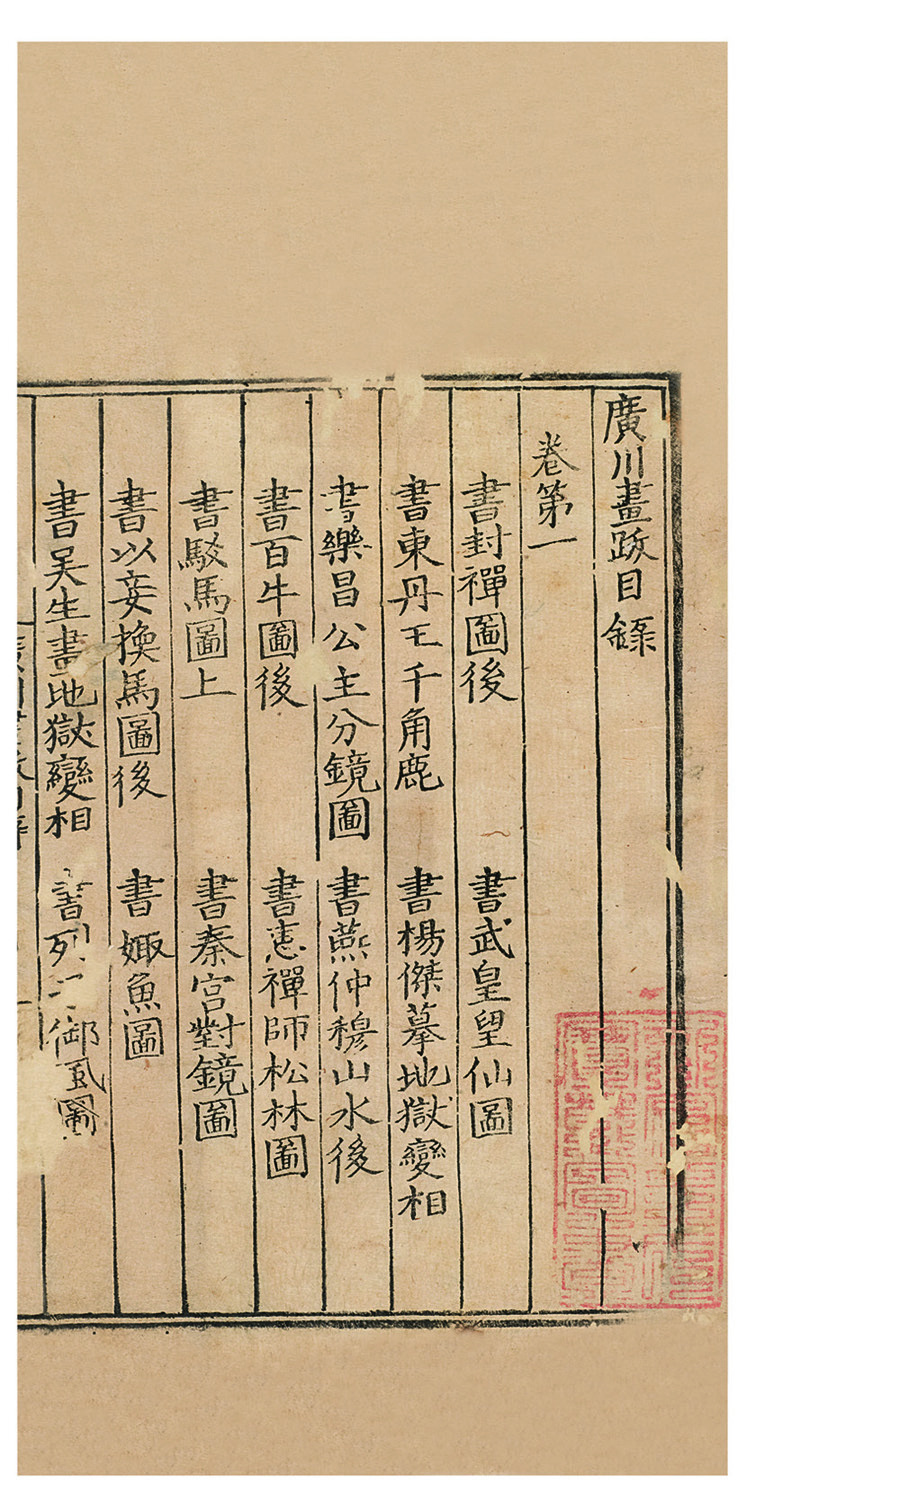 廣川畫跋目錄
卷第一
書封禪圖後 書武皇望仙圖
書東丹王千角鹿 書楊傑摹地獄變相
書樂昌公主分鏡圖 書燕仲穆山水後
書百牛圖後 書恵禪師松林圖
書駁馬圖上 書秦宮對鏡圖
書以妾換馬圖後 書娵魚圖
書吴生畫地獄變相 書列子御風圖